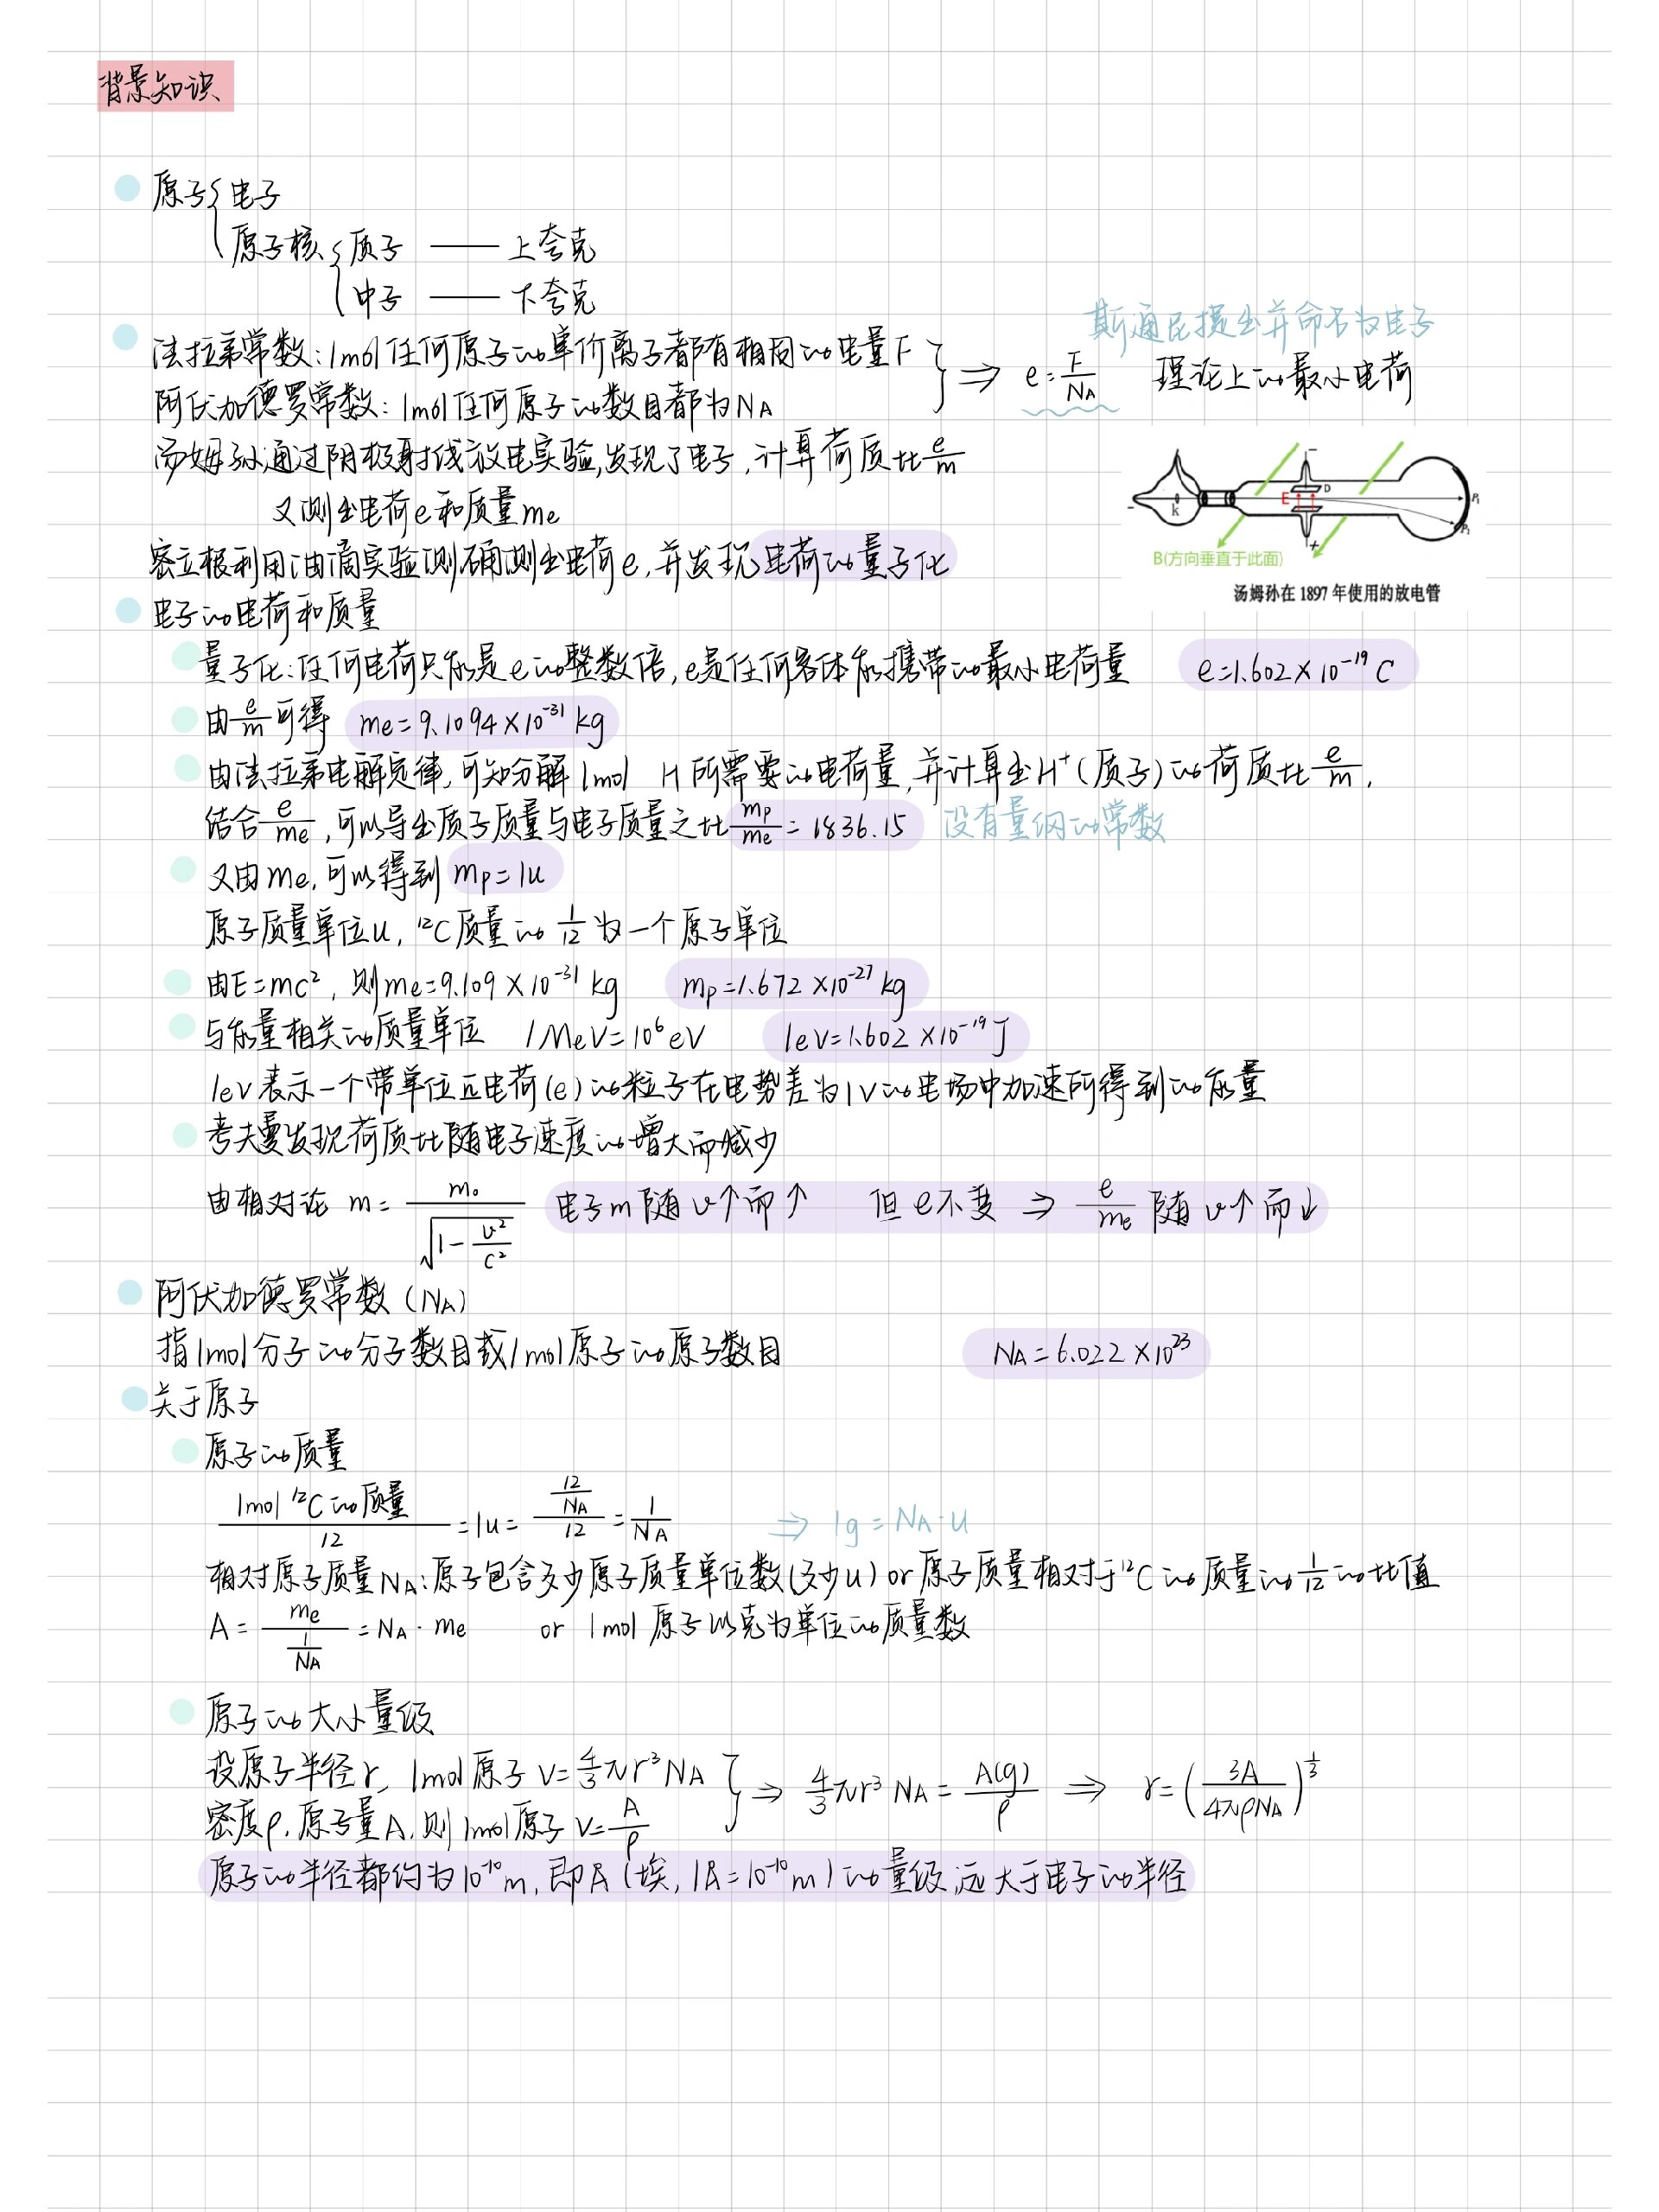 背景知识
原子{电子
原子核{质子 —— 上夸克
中子 —— 下夸克
斯通尼提出并命名为电子
法拉第常数:1mol任何原子的单价离子都有相同的电量F
阿伏加德罗常数:1mol任何原子的数目都为NA
} ⇒ e=F/NA 理论上的最小电荷
汤姆孙通过阴极射线放电实验,发现了电子,计算荷质比e/m
又测出电荷e和质量me
密立根利用油滴实验测确测出电荷e,并发现电荷的量子化
- k E D - + P1 P2
B(方向垂直于此面)
汤姆孙在 1897 年使用的放电管
电子的电荷和质量
量子化:任何电荷只能是e的整数倍,e是任何客体能携带的最小电荷量 e=1.602×10⁻¹⁹C
由e/m可得 me=9.1094×10⁻³¹kg
由法拉第电解定律,可知分解1mol H所需要的电荷量,并计算出H⁺(质子)的荷质比e/m,
结合e/me,可以导出质子质量与电子质量之比mp/me=1836.15 没有量纲的常数
又由me,可以得到mp=1u
原子质量单位u,¹²C质量的1/12为一个原子单位
由E=mc²,则me=9.109×10⁻³¹kg mp=1.672×10⁻²⁷kg
与能量相关的质量单位 1MeV=10⁶eV 1eV=1.602×10⁻¹⁹J
1eV表示一个带单位正电荷(e)的粒子在电势差为1V的电场中加速所得到的能量
考夫曼发现荷质比随电子速度的增大而减少
由相对论 m=m₀/√(1-v²/c²) 电子m随v↑而↑ 但e不变 ⇒ e/me随v↑而↓
阿伏加德罗常数(NA)
指1mol分子的分子数目或1mol原子的原子数目 NA=6.022×10²³
关于原子
原子的质量
1mol ¹²C的质量/12=1u=(12/NA)/12=1/NA ⇒ 1g=NA·u
相对原子质量NA:原子包含多少原子质量单位数(多少u)or原子质量相对于¹²C的质量的1/12的比值
A=me/(1/NA)=NA·me or 1mol原子以克为单位的质量数
原子的大小量级
设原子半径r,1mol原子V=4/3πr³NA
密度ρ,原子量A,则1mol原子V=A/ρ
} ⇒ 4/3πr³NA=A(g)/ρ ⇒ r=(3A/4πρNA)^(1/3)
原子的半径都约为10⁻¹⁰m,即Å(埃,1Å=10⁻¹⁰m)的量级,远大于电子的半径